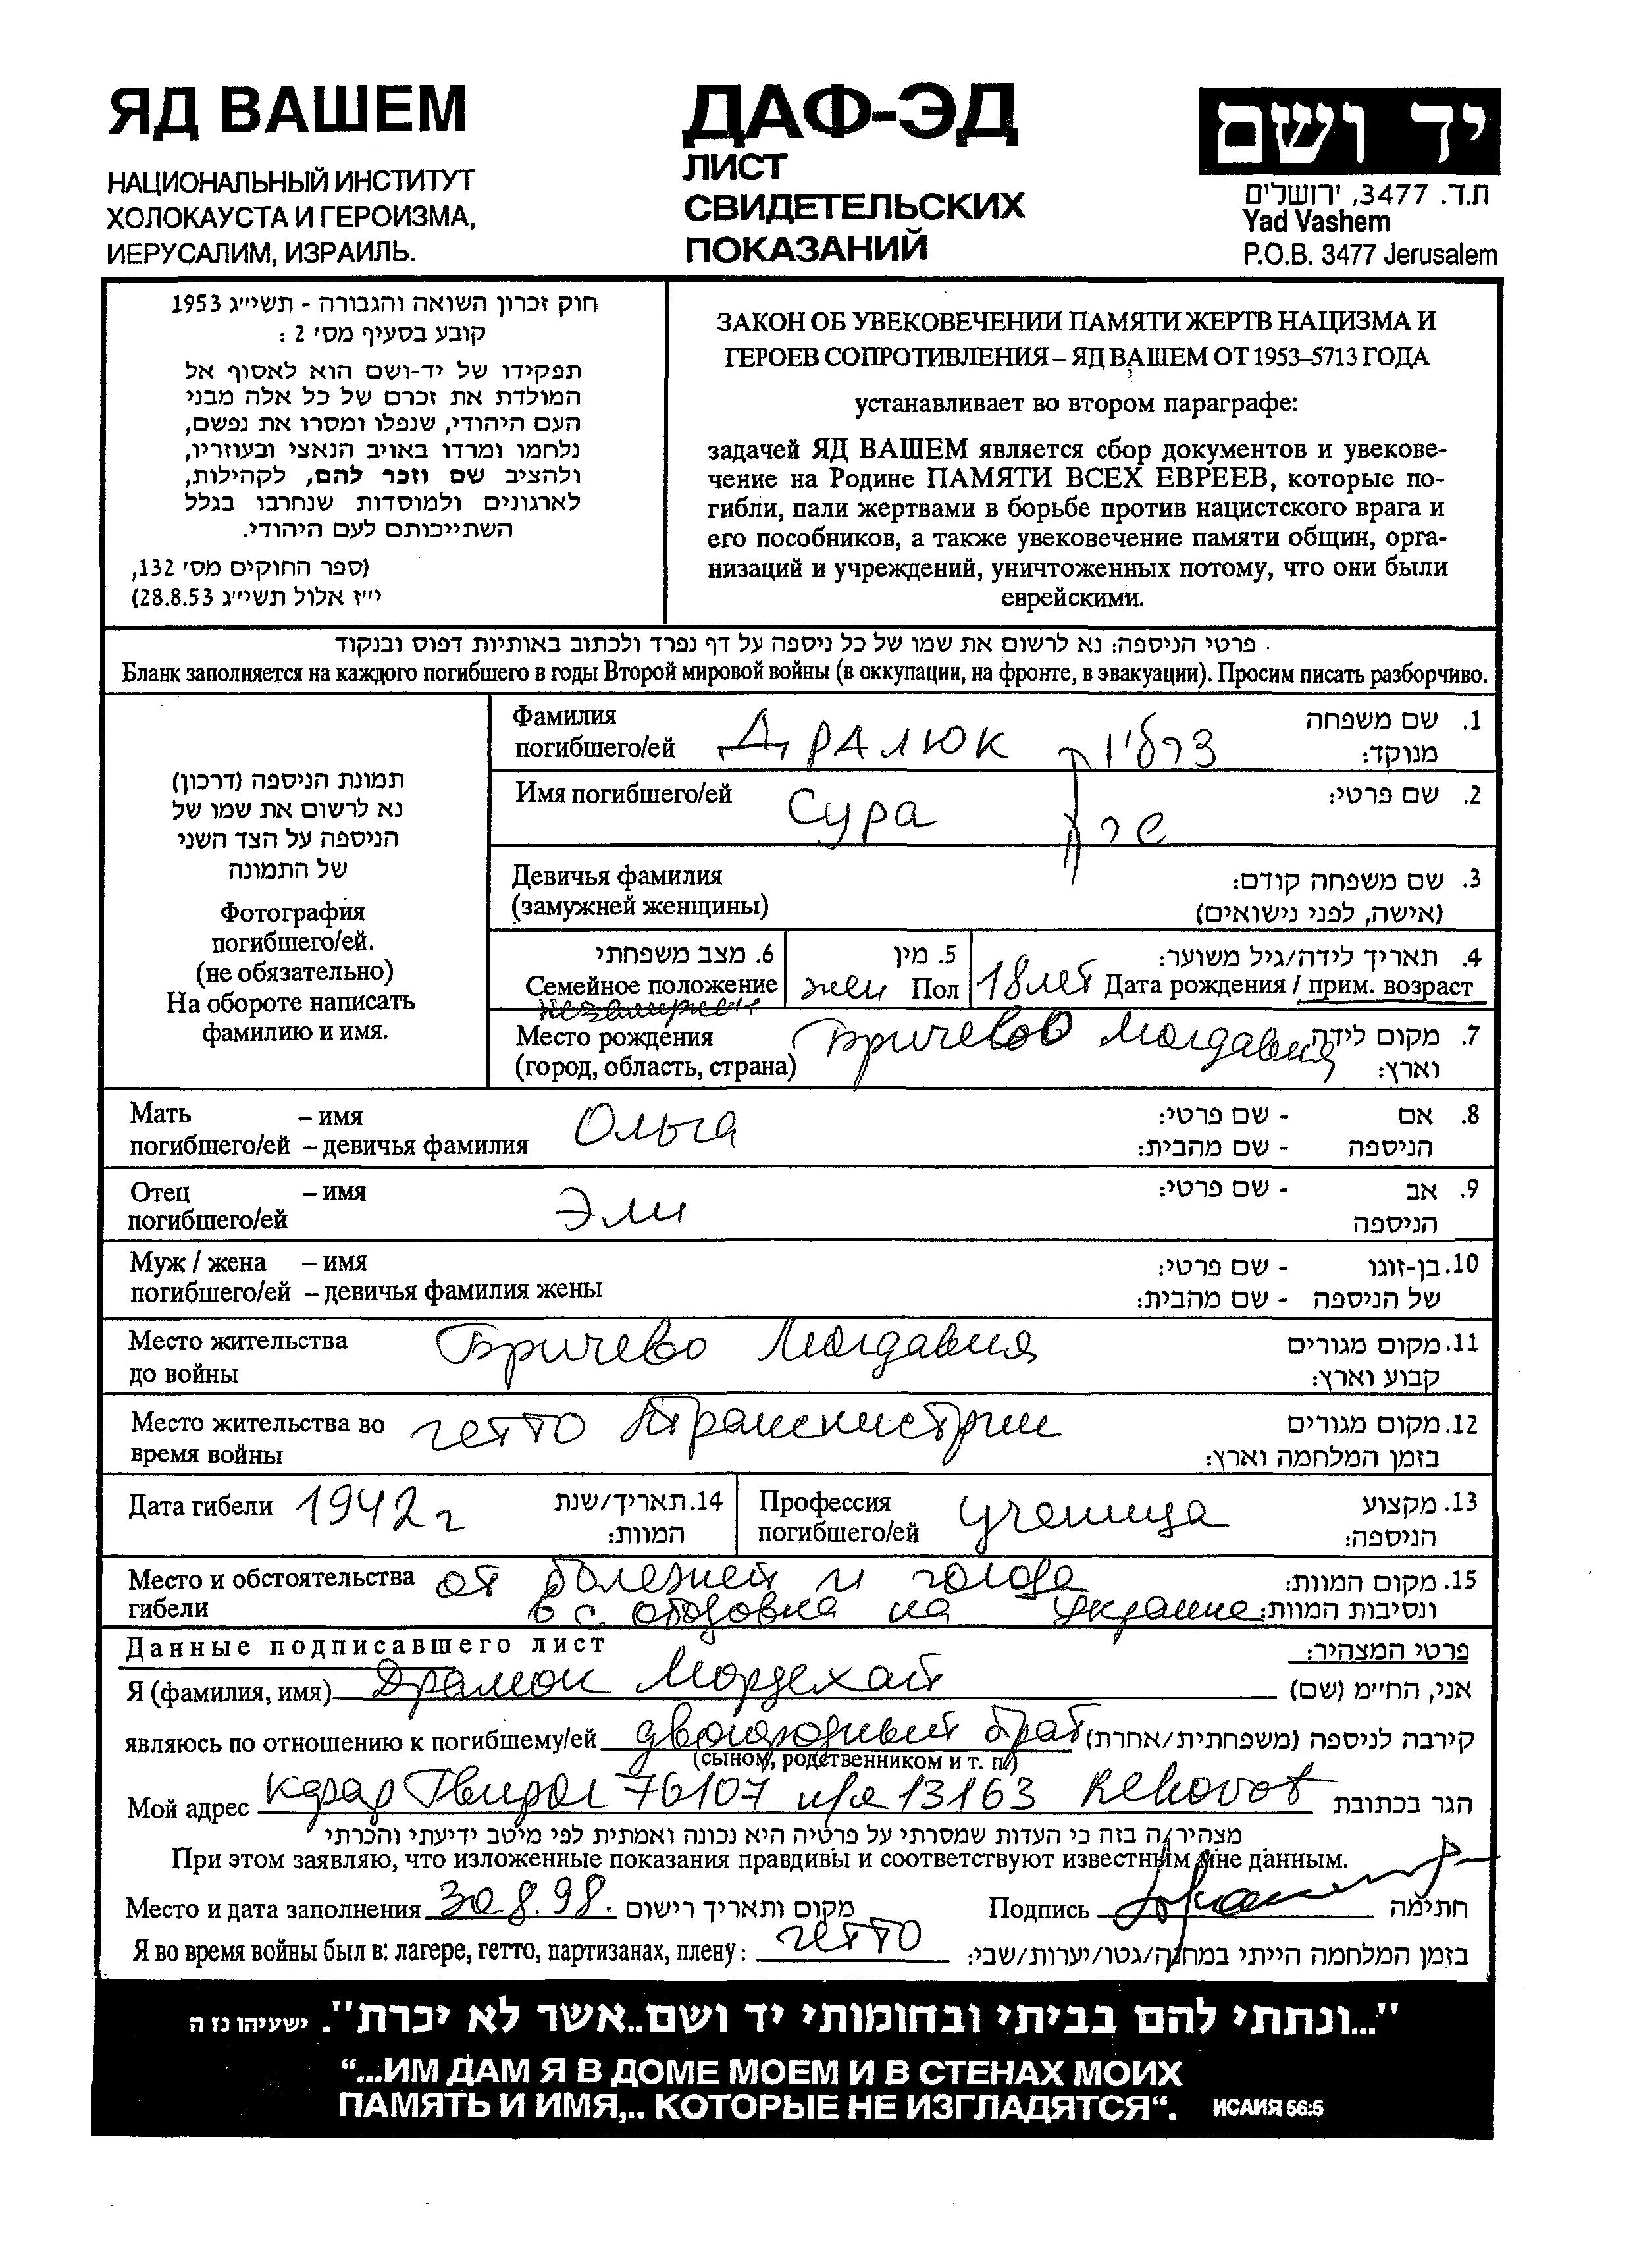 ЯД ВАШЕМ
НАЦИОНАЛЬНЫЙ ИНСТИТУТ
ХОЛОКАУСТА И ГЕРОИЗМА,
ИЕРУСАЛИМ, ИЗРАИЛЬ.
ДАФ-ЭД
ЛИСТ
СВИДЕТЕЛЬСКИХ
ПОКАЗАНИЙ
יד ושם
ת.ד. 3477, ירושלים
Yad Vashem
P.O.B. 3477 Jerusalem
חוק זכרון השואה והגבורה - תשי״ג 1953
קובע בסעיף מס׳ 2 :
תפקידו של יד-ושם הוא לאסוף אל
המולדת את זכרם של כל אלה מבני
העם היהודי, שנפלו ומסרו את נפשם,
נלחמו ומרדו באויב הנאצי ובעוזריו,
ולהציב שם וזכר להם, לקהילות,
לארגונים ולמוסדות שנחרבו בגלל
השתייכותם לעם היהודי.
(ספר החוקים מס׳ 132,
י״ז אלול תשי״ג 28.8.53)
ЗАКОН ОБ УВЕКОВЕЧЕНИИ ПАМЯТИ ЖЕРТВ НАЦИЗМА И
ГЕРОЕВ СОПРОТИВЛЕНИЯ – ЯД ВАШЕМ ОТ 1953–5713 ГОДА
устанавливает во втором параграфе:
задачей ЯД ВАШЕМ является сбор документов и увекове-
чение на Родине ПАМЯТИ ВСЕХ ЕВРЕЕВ, которые по-
гибли, пали жертвами в борьбе против нацистского врага и
его пособников, а также увековечение памяти общин, орга-
низаций и учреждений, уничтоженных потому, что они были
еврейскими.
פרטי הניספה: נא לרשום את שמו של כל ניספה על דף נפרד ולכתוב באותיות דפוס ובנקוד
Бланк заполняется на каждого погибшего в годы Второй мировой войны (в оккупации, на фронте, в эвакуации). Просим писать разборчиво.
תמונת הניספה (דרכון)
נא לרשום את שמו של
הניספה על הצד השני
של התמונה
Фотография
погибшего/ей.
(не обязательно)
На обороте написать
фамилию и имя.
Фамилия
погибшего/ей ДРАЛЮК דרליוק
1. שם משפחה
מנוקד:
Имя погибшего/ей Сура שרה 2. שם פרטי:
Девичья фамилия
(замужней женщины)
3. שם משפחה קודם:
(אישה, לפני נישואים)
6. מצב משפחתי
Семейное положение
незамужем
5. מין
жен Пол
4. תאריך לידה/גיל משוער:
18 лет Дата рождения / прим. возраст
Место рождения
(город, область, страна) Бричево Молдавия
7. מקום לידה
וארץ:
Мать – имя Ольга
погибшего/ей – девичья фамилия
8. אם - שם פרטי:
הניספה - שם מהבית:
Отец – имя Эли
погибшего/ей
9. אב - שם פרטי:
הניספה
Муж / жена – имя
погибшего/ей – девичья фамилия жены
10. בן-זוגו - שם פרטי:
של הניספה - שם מהבית:
Место жительства
до войны Бричево Молдавия
11. מקום מגורים
קבוע וארץ:
Место жительства во
время войны гетто Транснистрии
12. מקום מגורים
בזמן המלחמה וארץ:
Дата гибели 1942 г
14. תאריך/שנת
המוות:
Профессия
погибшего/ей ученица
13. מקצוע
הניספה:
Место и обстоятельства от болезней и голода
гибели в с. на Украине
15. מקום המוות:
ונסיבות המוות:
Данные подписавшего лист פרטי המצהיר:
Я (фамилия, имя) Дралюк Мордехай אני, החי״מ (שם)
являюсь по отношению к погибшему/ей двоюродный брат קירבה לניספה (משפחתית/אחרת)
(сыном, родственником и т. п.)
Мой адрес Кфар Гвирол 76107 п/я 13163 Rehovot הגר בכתובת
מצהיר/ה בזה כי העדות שמסרתי על פרטיה היא נכונה ואמתית לפי מיטב ידיעתי והכרתי
При этом заявляю, что изложенные показания правдивы и соответствуют известным мне данным.
Место и дата заполнения 30.8.98. מקום ותאריך רישום Подпись חתימה
Я во время войны был в: лагере, гетто, партизанах, плену: гетто בזמן המלחמה הייתי במחנה/גטו/יערות/שבי:
"...ונתתי להם בביתי ובחומותי יד ושם..אשר לא יכרת". ישעיהו נז ה
“...ИМ ДАМ Я В ДОМЕ МОЕМ И В СТЕНАХ МОИХ
ПАМЯТЬ И ИМЯ,.. КОТОРЫЕ НЕ ИЗГЛАДЯТСЯ“. ИСАИЯ 56:5